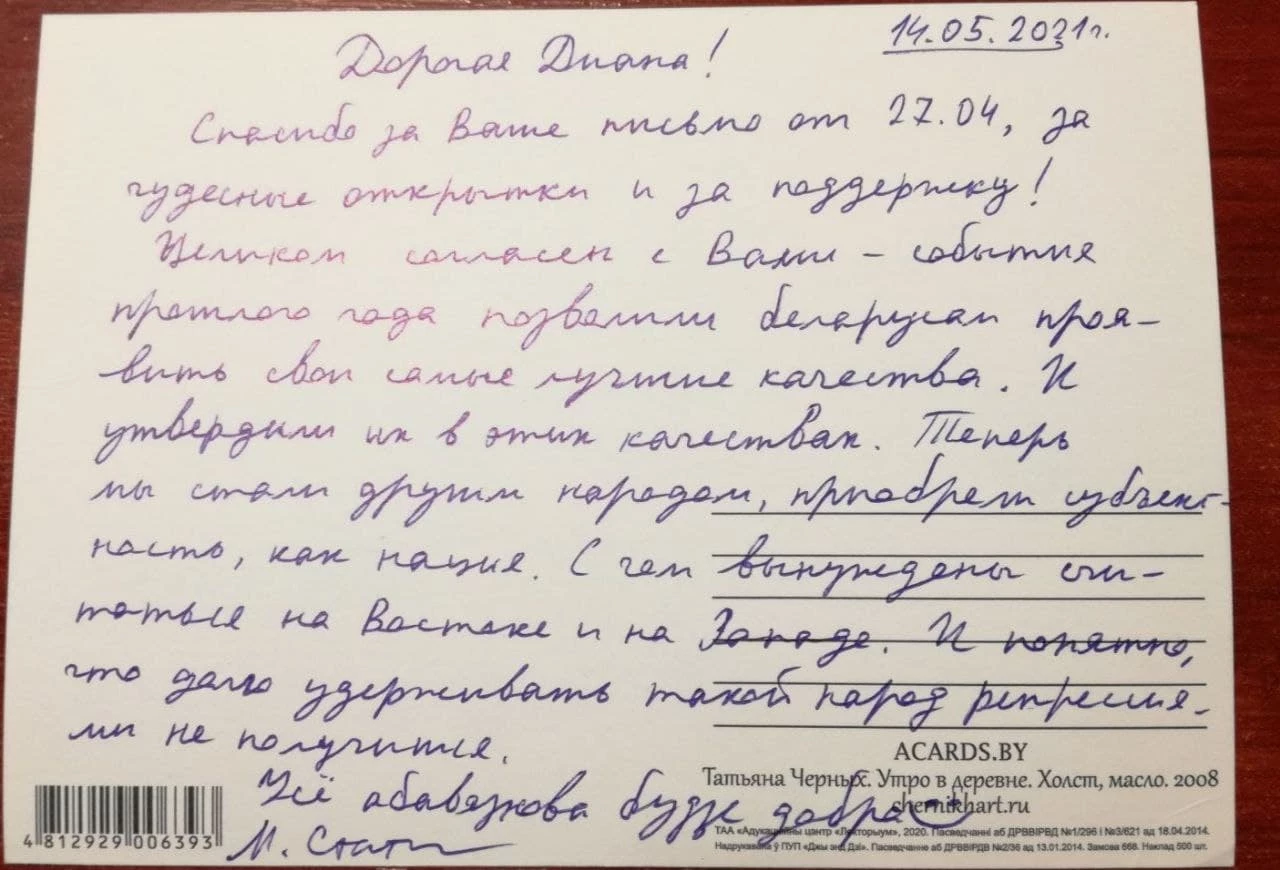 14.05.2021г.
Дорогая Диана!
Спасибо за Ваше письмо от 27.04, за
чудесные открытки и за поддержку!
Целиком согласен с Вами - события
прошлого года позволили беларусам проя-
вить свои самые лучшие качества. И
утвердили их в этих качествах. Теперь
мы стали другим народом, приобрели субъект-
ность, как нация. С чем вынуждены счи-
таться на Востоке и на Западе. И понятно,
что долго удерживать такой народ репрессия-
ми не получится.
Усё абавязкова будзе добра
М. Стат
ACARDS.BY
Татьяна Черных. Утро в деревне. Холст, масло. 2008
chernikhart.ru
ТАА «Адукацыйны цэнтр «Лекторыум», 2020. Пасведчанні аб ДРВВІРВД №1/296 і №3/621 ад 18.04.2014.
Надрукавана ў ПУП «Джы энд Дзі». Пасведчанне аб ДРВВІРДВ №2/36 ад 13.01.2014. Замова 668. Наклад 500 шт.
4 812929 006393